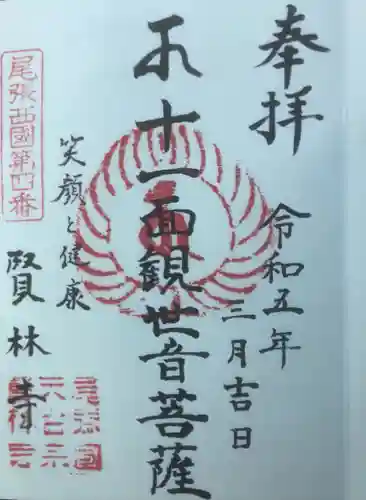 奉拝
令和五年
三月吉日
十一面観世音菩薩
笑顔と健康
尾張西國第四番
賢林寺